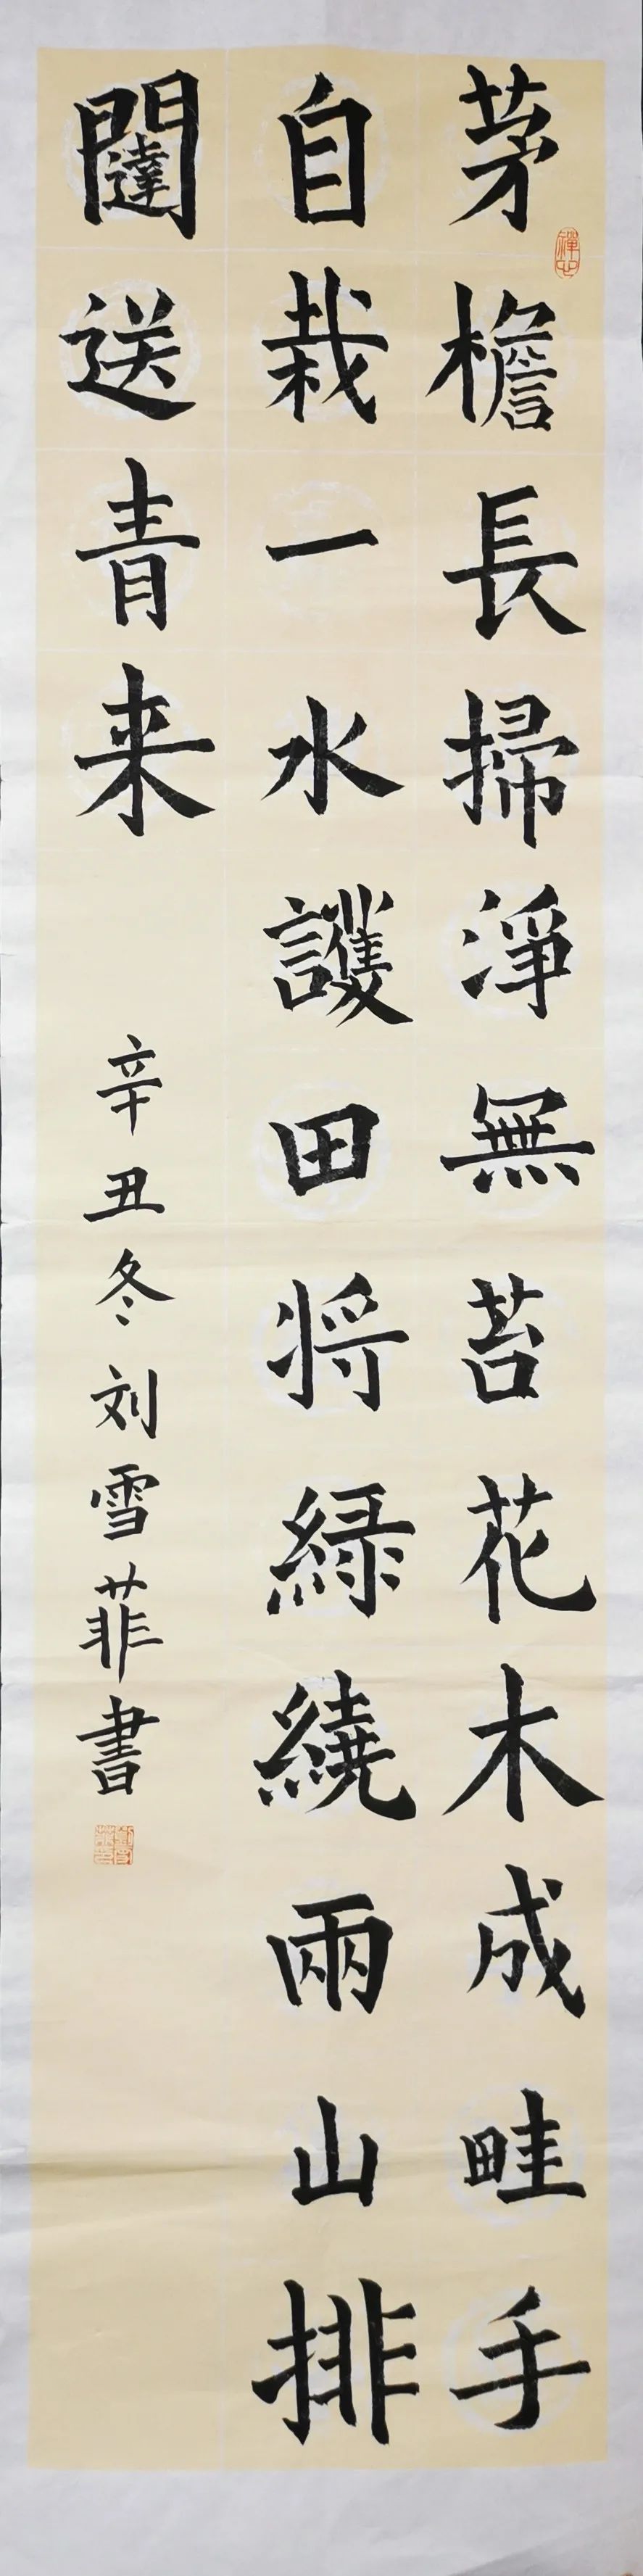 茅檐長掃淨無苔花木成畦手
自栽一水護田将緑繞兩山排
闥送青来
辛丑冬刘雪菲書
禪心